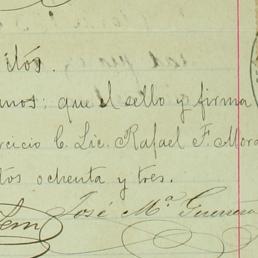 itós.
nos: que el sello y firma
rcicio C. Lic. Rafael F. Mora
tos ochenta y tres.
José Mª Guerrero